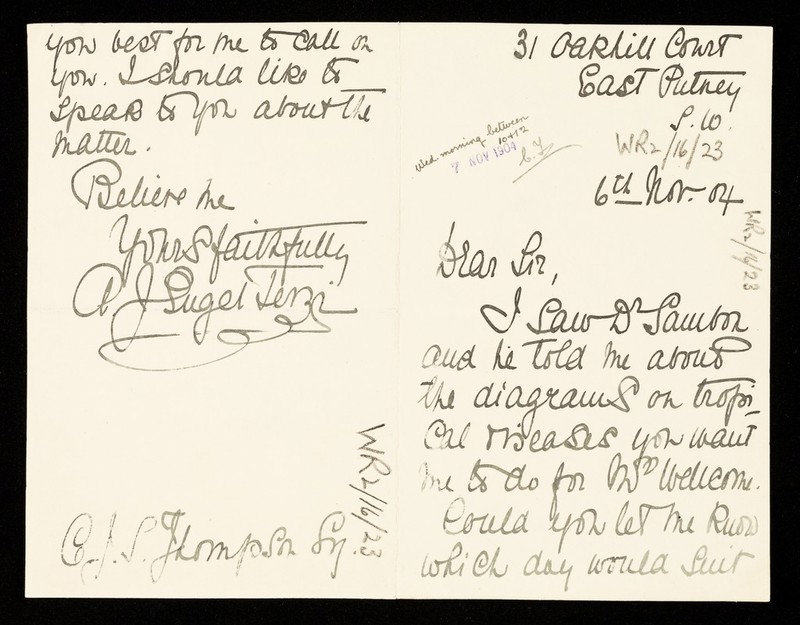 31 Oakhill Court
East Putney
S.W.
WR2/16/23
Wed morning between
10 + 12
7 NOV 1904
C.T
6th Nov. 04
WR2/16/23
Dear Sir,
I saw Dr Sambon
and he told me about
the diagrams on tropi-
cal diseases you want
me to do for Mr Wellcome.
Could you let me know
which day would suit
you best for me to call on
you. I should like to
speak to you about the
matter.
Believe me
Yours faithfully
A J Engel Terzi
WR2/16/23
C. J. S. Thompson Esq.